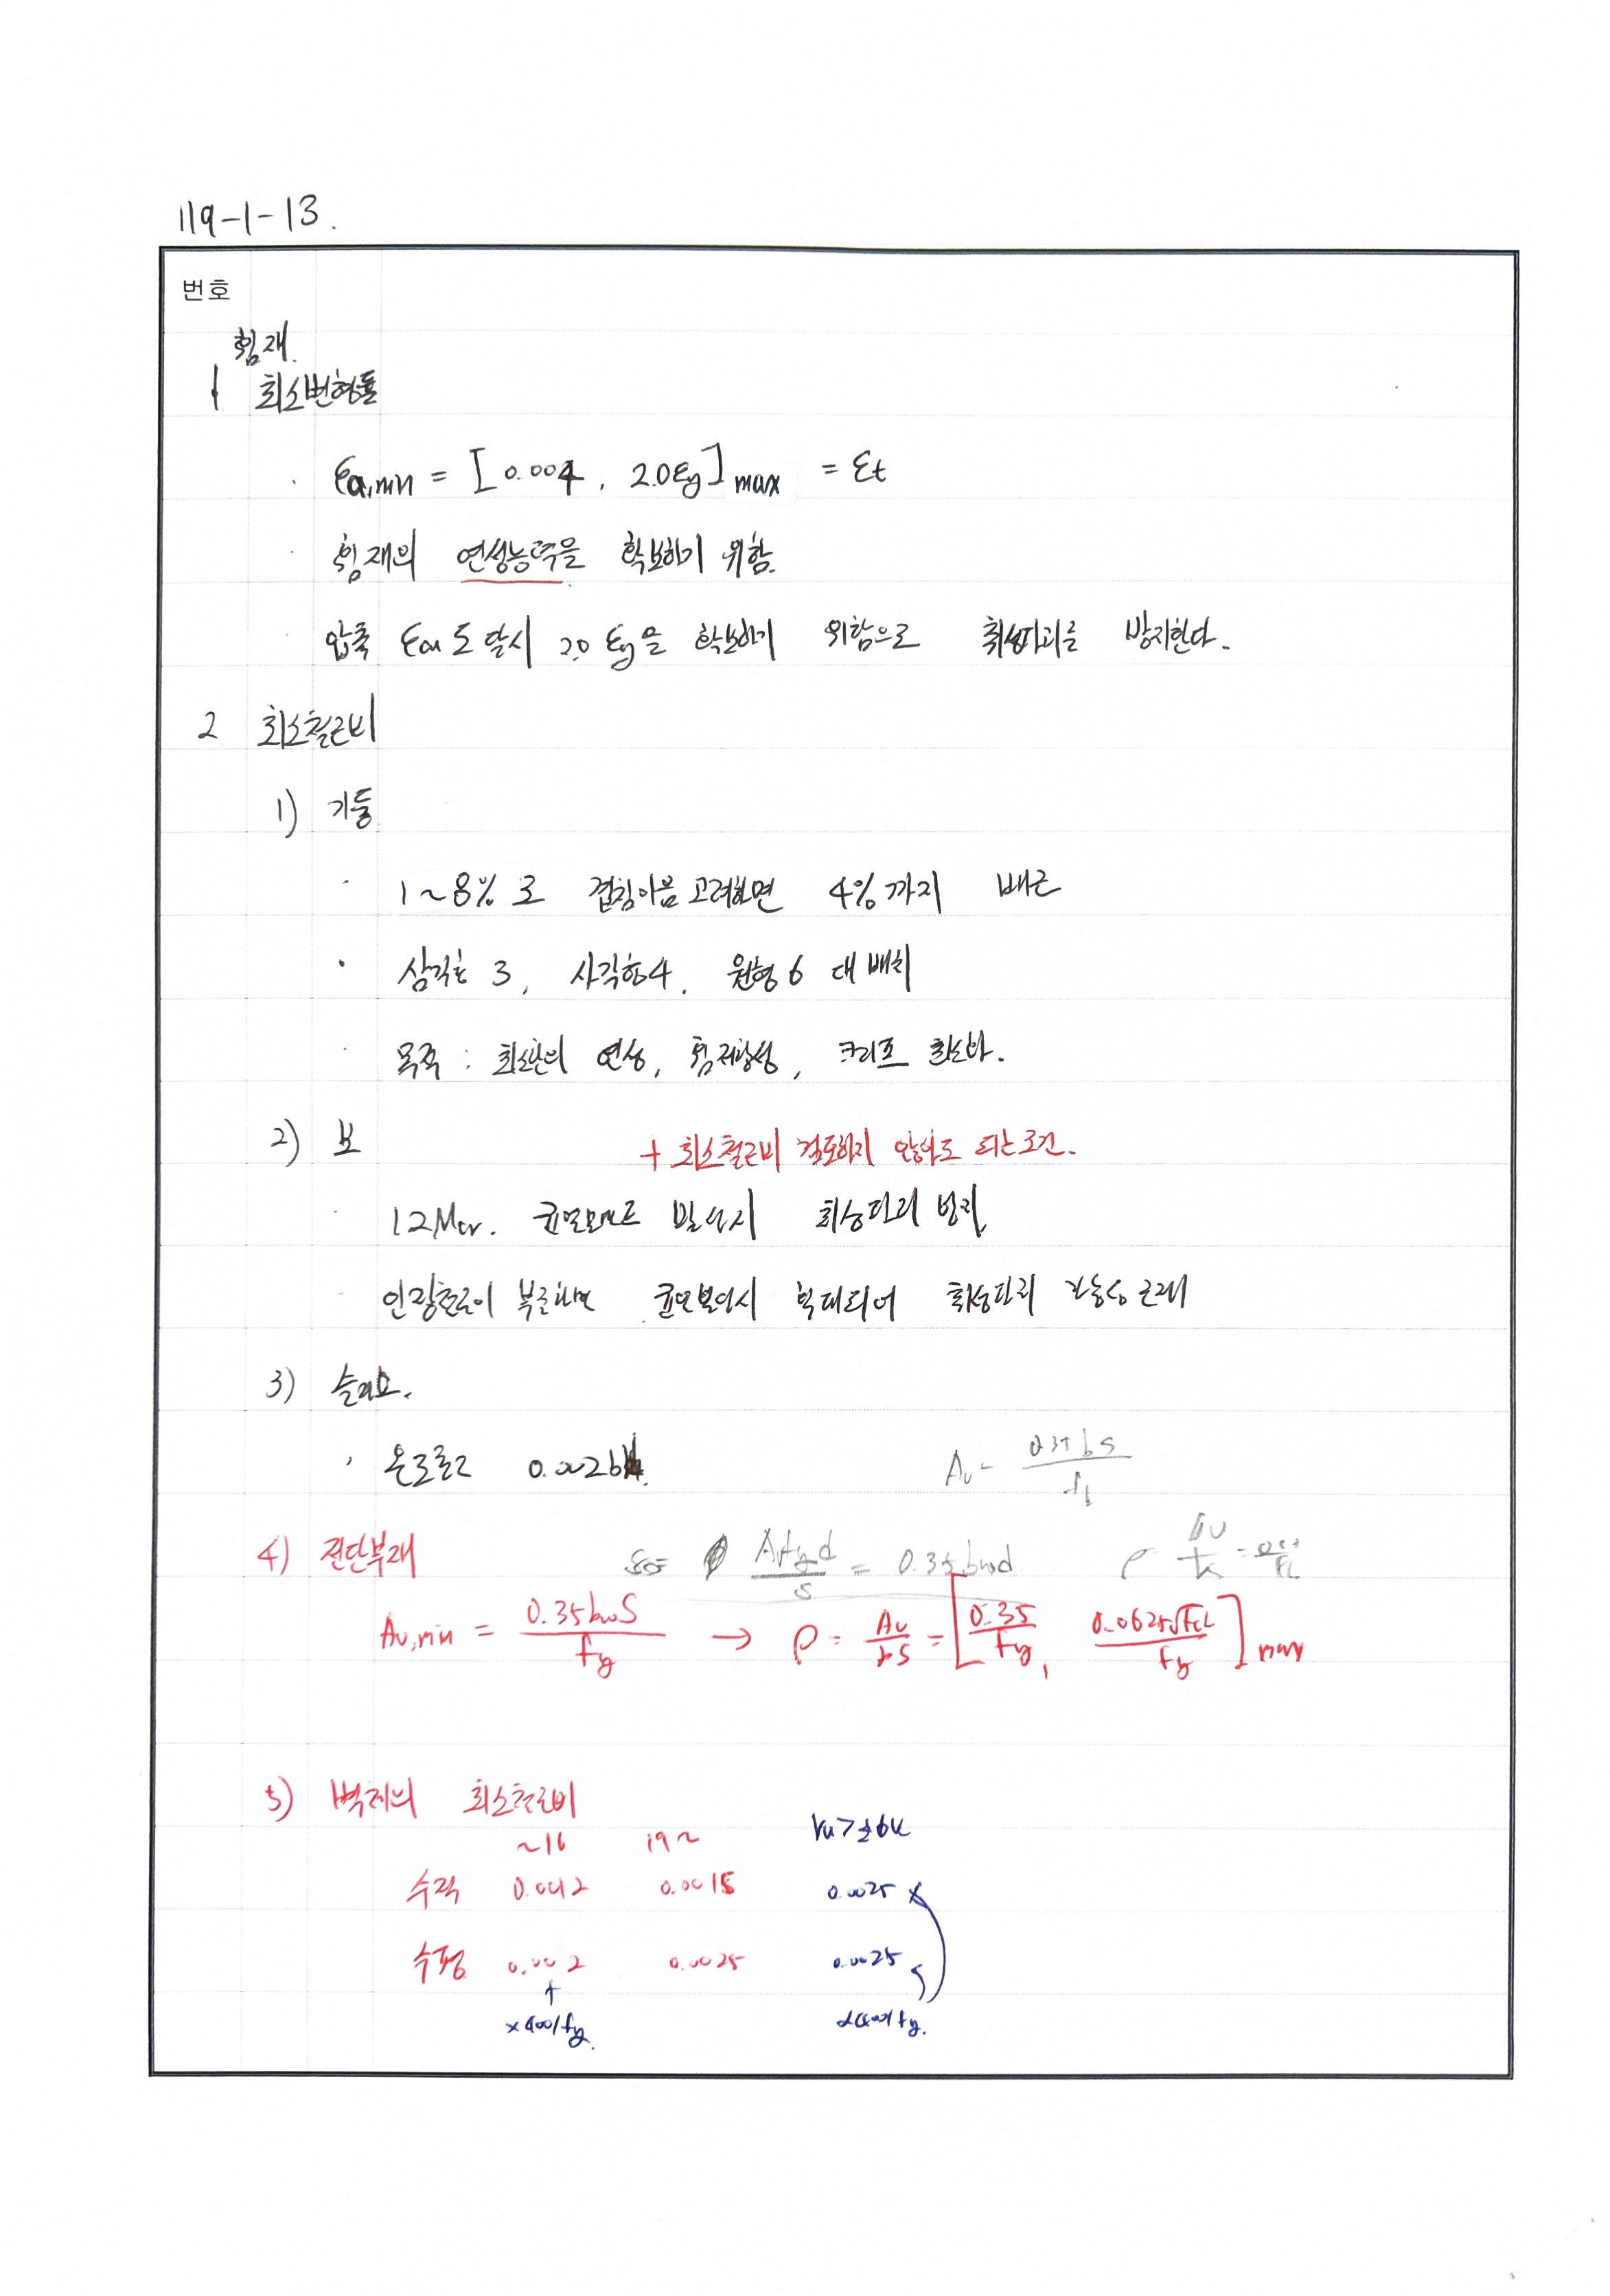 119-1-13.
번호
휨재.
1 최소변형률
· εa,min = [0.004, 2.0εy]max = εt
· 휨재의 연성능력을 확보하기 위함.
· 압축 εcu 도달시 2.0 εy을 확보하기 위함으로 취성파괴를 방지한다.
2 최소철근비
1) 기둥
· 1~8%로 겹침이음 고려하면 4%까지 배근
· 삼각형 3, 사각형4, 원형 6 대 배치
· 목적 : 최소한의 연성, 휨저항성, 크리프 최소화.
2) 보 + 최소철근비 검토하지 않아도 되는 조건.
· 1.2Mcr. 균열모멘트 발생시 취성파괴 방지
· 인장철근이 부족하면 균열발생시 확대되어 취성파괴 가능성 존재
3) 슬래브.
· 온도철근 0.002bh.
Av = 0.35bs / fy
4) 전단부재
Avfyd / s = 0.35bwd
Av,min = 0.35bwS / fy → ρ = Av / bs = [0.35 / fy, 0.0625√fck / fy]max
5) 벽체의 최소철근비
~16 19~ Vu > ½φVc
수직 0.0012 0.0015 0.0025
수평 0.002 0.0025 0.0025
×400/fy. ×400/fy.